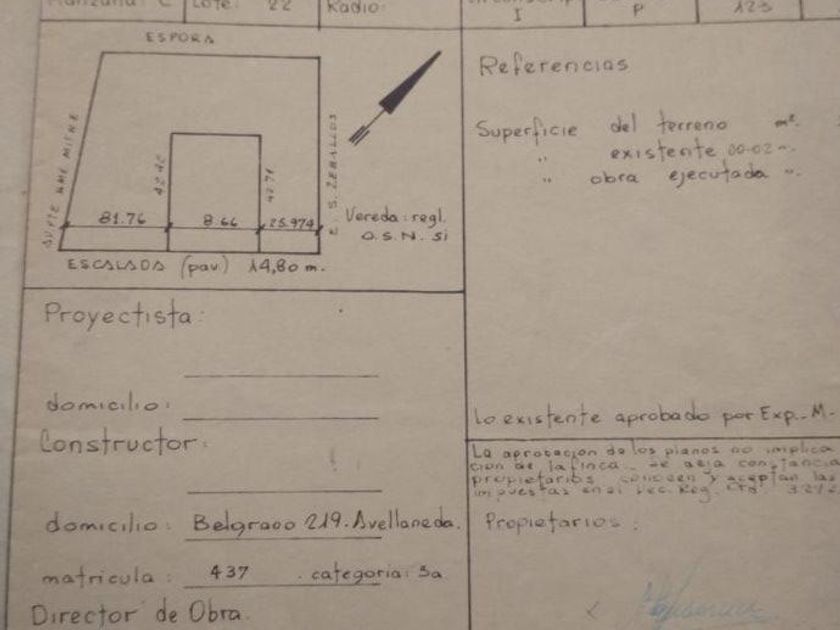 Manzana: C Lote: 22 Radio: I P 123
ESPORA
AVTE. BME MITRE
E. S. ZEBALLOS
81.76 8.66 25.974
Vereda: regl.
O.S.N. si
ESCALADA (pav.) 14,80 m.
Referencias
Superficie del terreno m².
" existente 00-02 ".
" obra ejecutada ".
Proyectista:
domicilio:
Constructor:
domicilio: Belgrano 219. Avellaneda.
matricula: 437 . categoria: 3a
Director de Obra.
Lo existente aprobado por Exp. M-
La aprobacion de los planos no implica
cion de la finca. se deja constancia
propietarios conocen y aceptan las
impuestas en el Dec. Reg.
Propietarios: